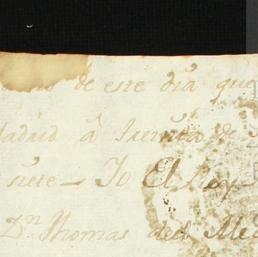 de este dia que
Madrid â treinta de
siete – Yo El Rey
Dn Thomas del